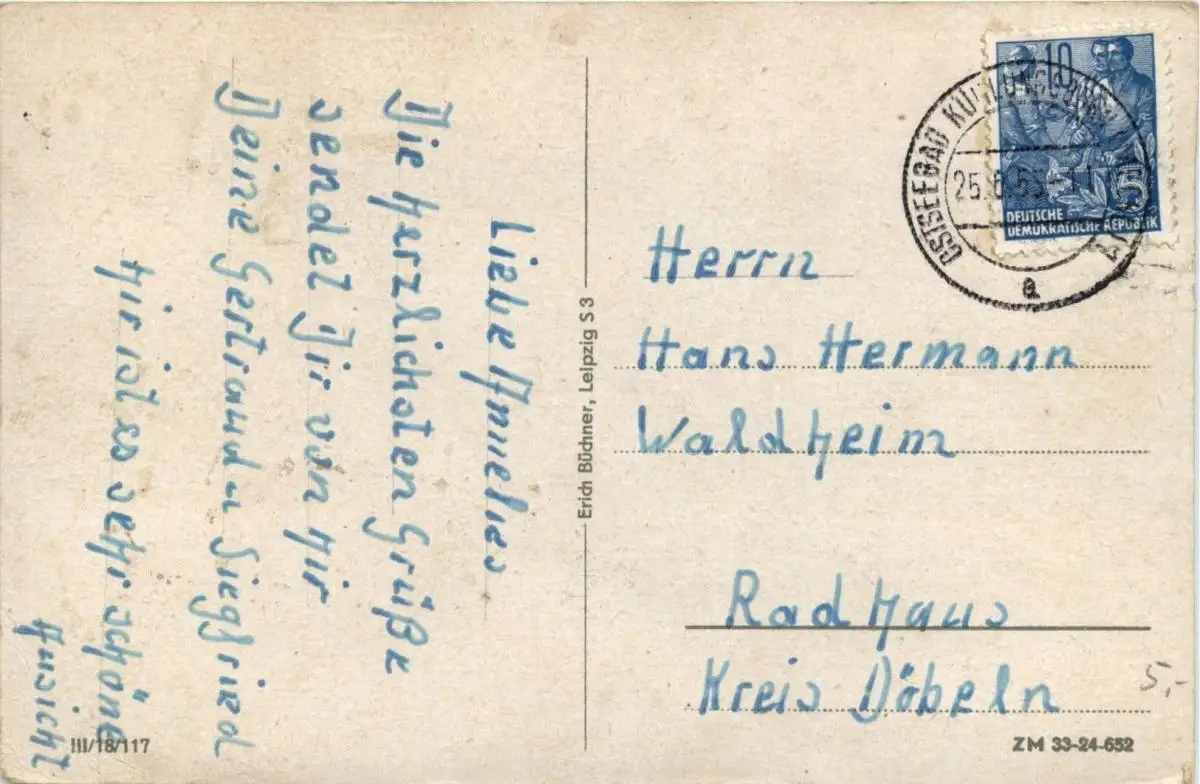 Liebe Annelies
Die Herzlichsten Grüße
sendet Dir von hir
Deine Gertraud u Siegfried
hir ist es sehr schöne
Ausicht
Herrn
Hans Hermann
Waldheim
Radhaus
Kreis Döbeln
Erich Büchner, Leipzig S 3
III/18/117
ZM 33-24-652
5,-
10
5
DEUTSCHE
DEMOKRATISCHE REPUBLIK
OSTSEEBAD KÜHLUNGSBORN
25.6.
a